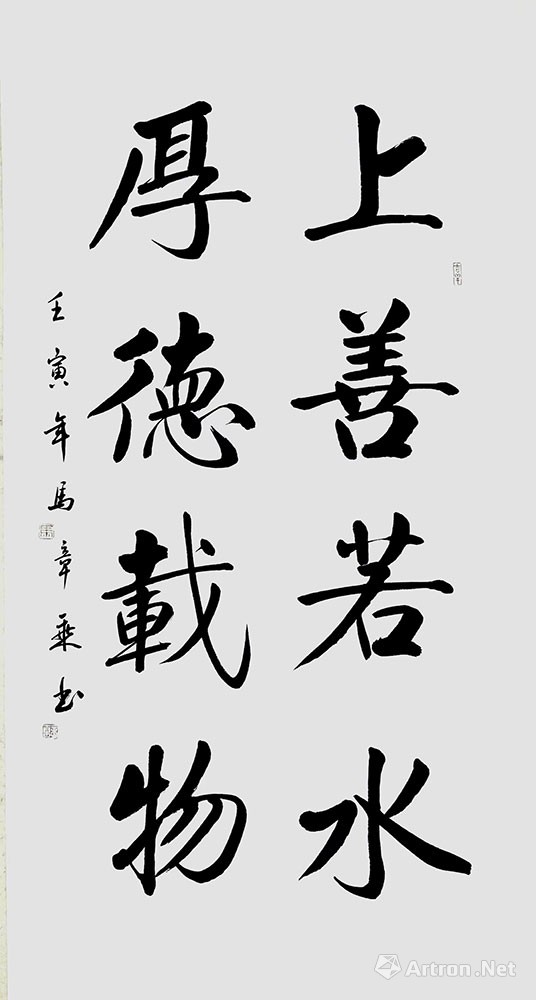 上善若水
厚德載物
壬寅年馬章乘书
Artron.Net